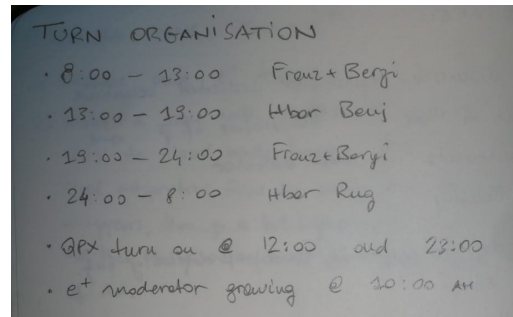 TURN ORGANISATION
· 8:00 – 13:00 Franz + Bergi
· 13:00 – 19:00 Hbar Benj
· 19:00 – 24:00 Franz + Bergi
· 24:00 – 8:00 Hbar Rug
· GPX turn on @ 12:00 and 23:00
· e+ moderator growing @ 10:00 AM